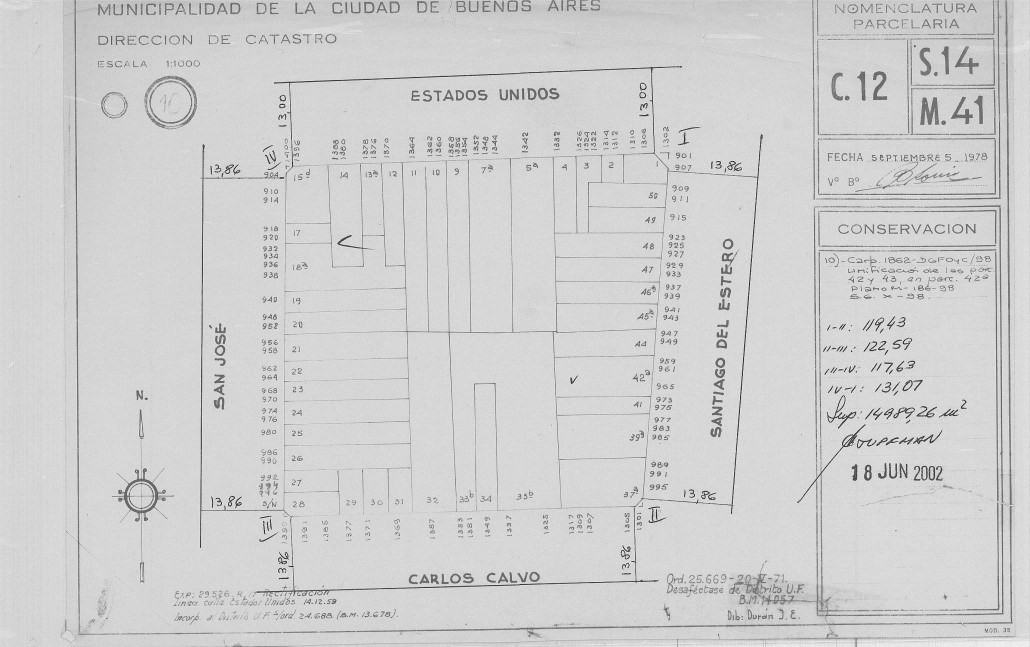 MUNICIPALIDAD DE LA CIUDAD DE BUENOS AIRES
DIRECCION DE CATASTRO
ESCALA 1:1000
10
NOMENCLATURA
PARCELARIA
C.12
S.14
M.41
FECHA SEPTIEMBRE 5 1978
Vº Bº
CONSERVACION
10)-Carp. 1862-DGFOyC/98
Unificación de las parc.
42 y 43, en parc. 42ª
Plano M-186-98
S.G. X-98.
I-II: 119,43
II-III: 122,59
III-IV: 117,63
IV-I: 131,07
Sup: 14989,26 m²
18 JUN 2002
ESTADOS UNIDOS
13,00
13,00
IV
I
1400 1396 1388 1380 1378 1376 1370 1364 1362 1360 1368 1356 1354 1352 1348 1344 1342 1332 1326 1324 1322 1314 1312 1310 1308 1302
13,86
13,86
15d 14 13ª 12 11 10 9 7ª 5ª 4 3 2 1
904
910
914
918
920
932
934
936
938
940
948
952
956
958
962
964
968
970
974
976
980
986
990
992
994
996
S/N
17
18ª
19
20
21
22
23
24
25
26
27
28 29 30 31 32 33b 34 35b 37ª
50
49
48
47
46ª
45ª
44
42ª
41
39ª
901
907
909
911
915
923
925
927
929
933
937
939
941
943
947
949
959
961
965
973
975
977
983
985
989
991
995
SAN JOSÉ
SANTIAGO DEL ESTERO
N.
13,86
13,86
III
II
1399 1391 1385 1377 1371 1369 1357 1353 1351 1349 1337 1325 1317 1309 1307 1305 1301
13,86
13,86
CARLOS CALVO
Exp: 29.526. R. Rectificación
Linea calle Estados Unidos. 14.12.59
Incorp. a Distrito U.F. s/ord. 24.688. (B.M. 13.678).
Ord. 25.669-20-V-71.
Desaféctase de Distrito U.F.
B.M. 14057
Dib: Durán J. E.
MOD. 35